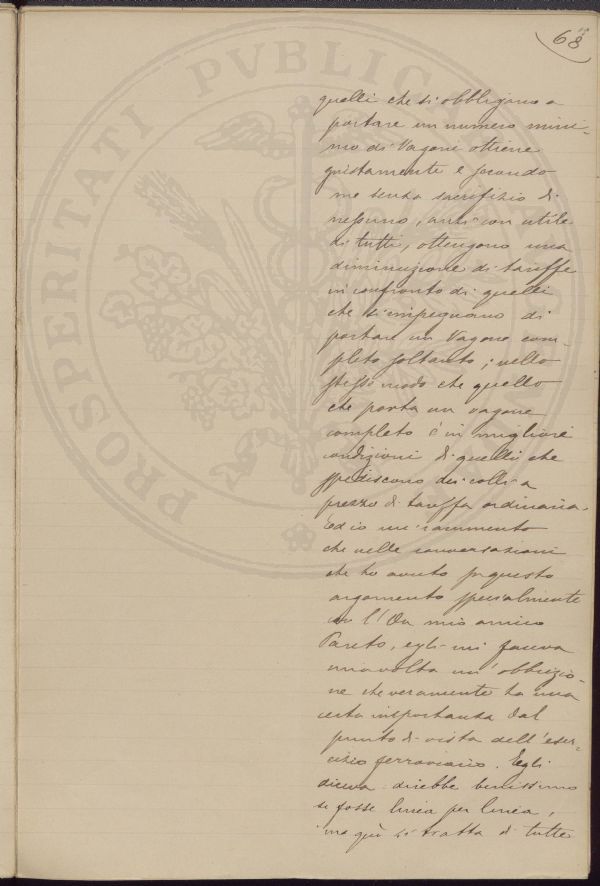 68
quelli che si obbligano a
portare un numero mini-
mo di Vagoni ottiene
giustamente e secondo
me senza sacrifizio di
nessuno, anzi con utile
di tutti, ottengono una
diminuzione di tariffe
in confronto di quelli
che s'impegnano di
portare un Vagone com-
pleto soltanto; nello
stesso modo che quello
che porta un vagone
completo è in migliori
condizioni di quelli che
spediscono dei colli a
prezzo di tariffa ordinaria.
Ed io mi rammento
che nelle conversazioni
che ho avuto per questo
argomento specialmente
con l'On mio amico
Pareto, egli mi faceva
una volta un'obbiezio-
ne che veramente ha una
certa importanza dal
punto di vista dell'eser-
cizio ferroviario. Egli
diceva: direbbe benissimo
se fosse linea per linea,
ma qui si tratta di tutte
PROSPERITATI PVBLICA